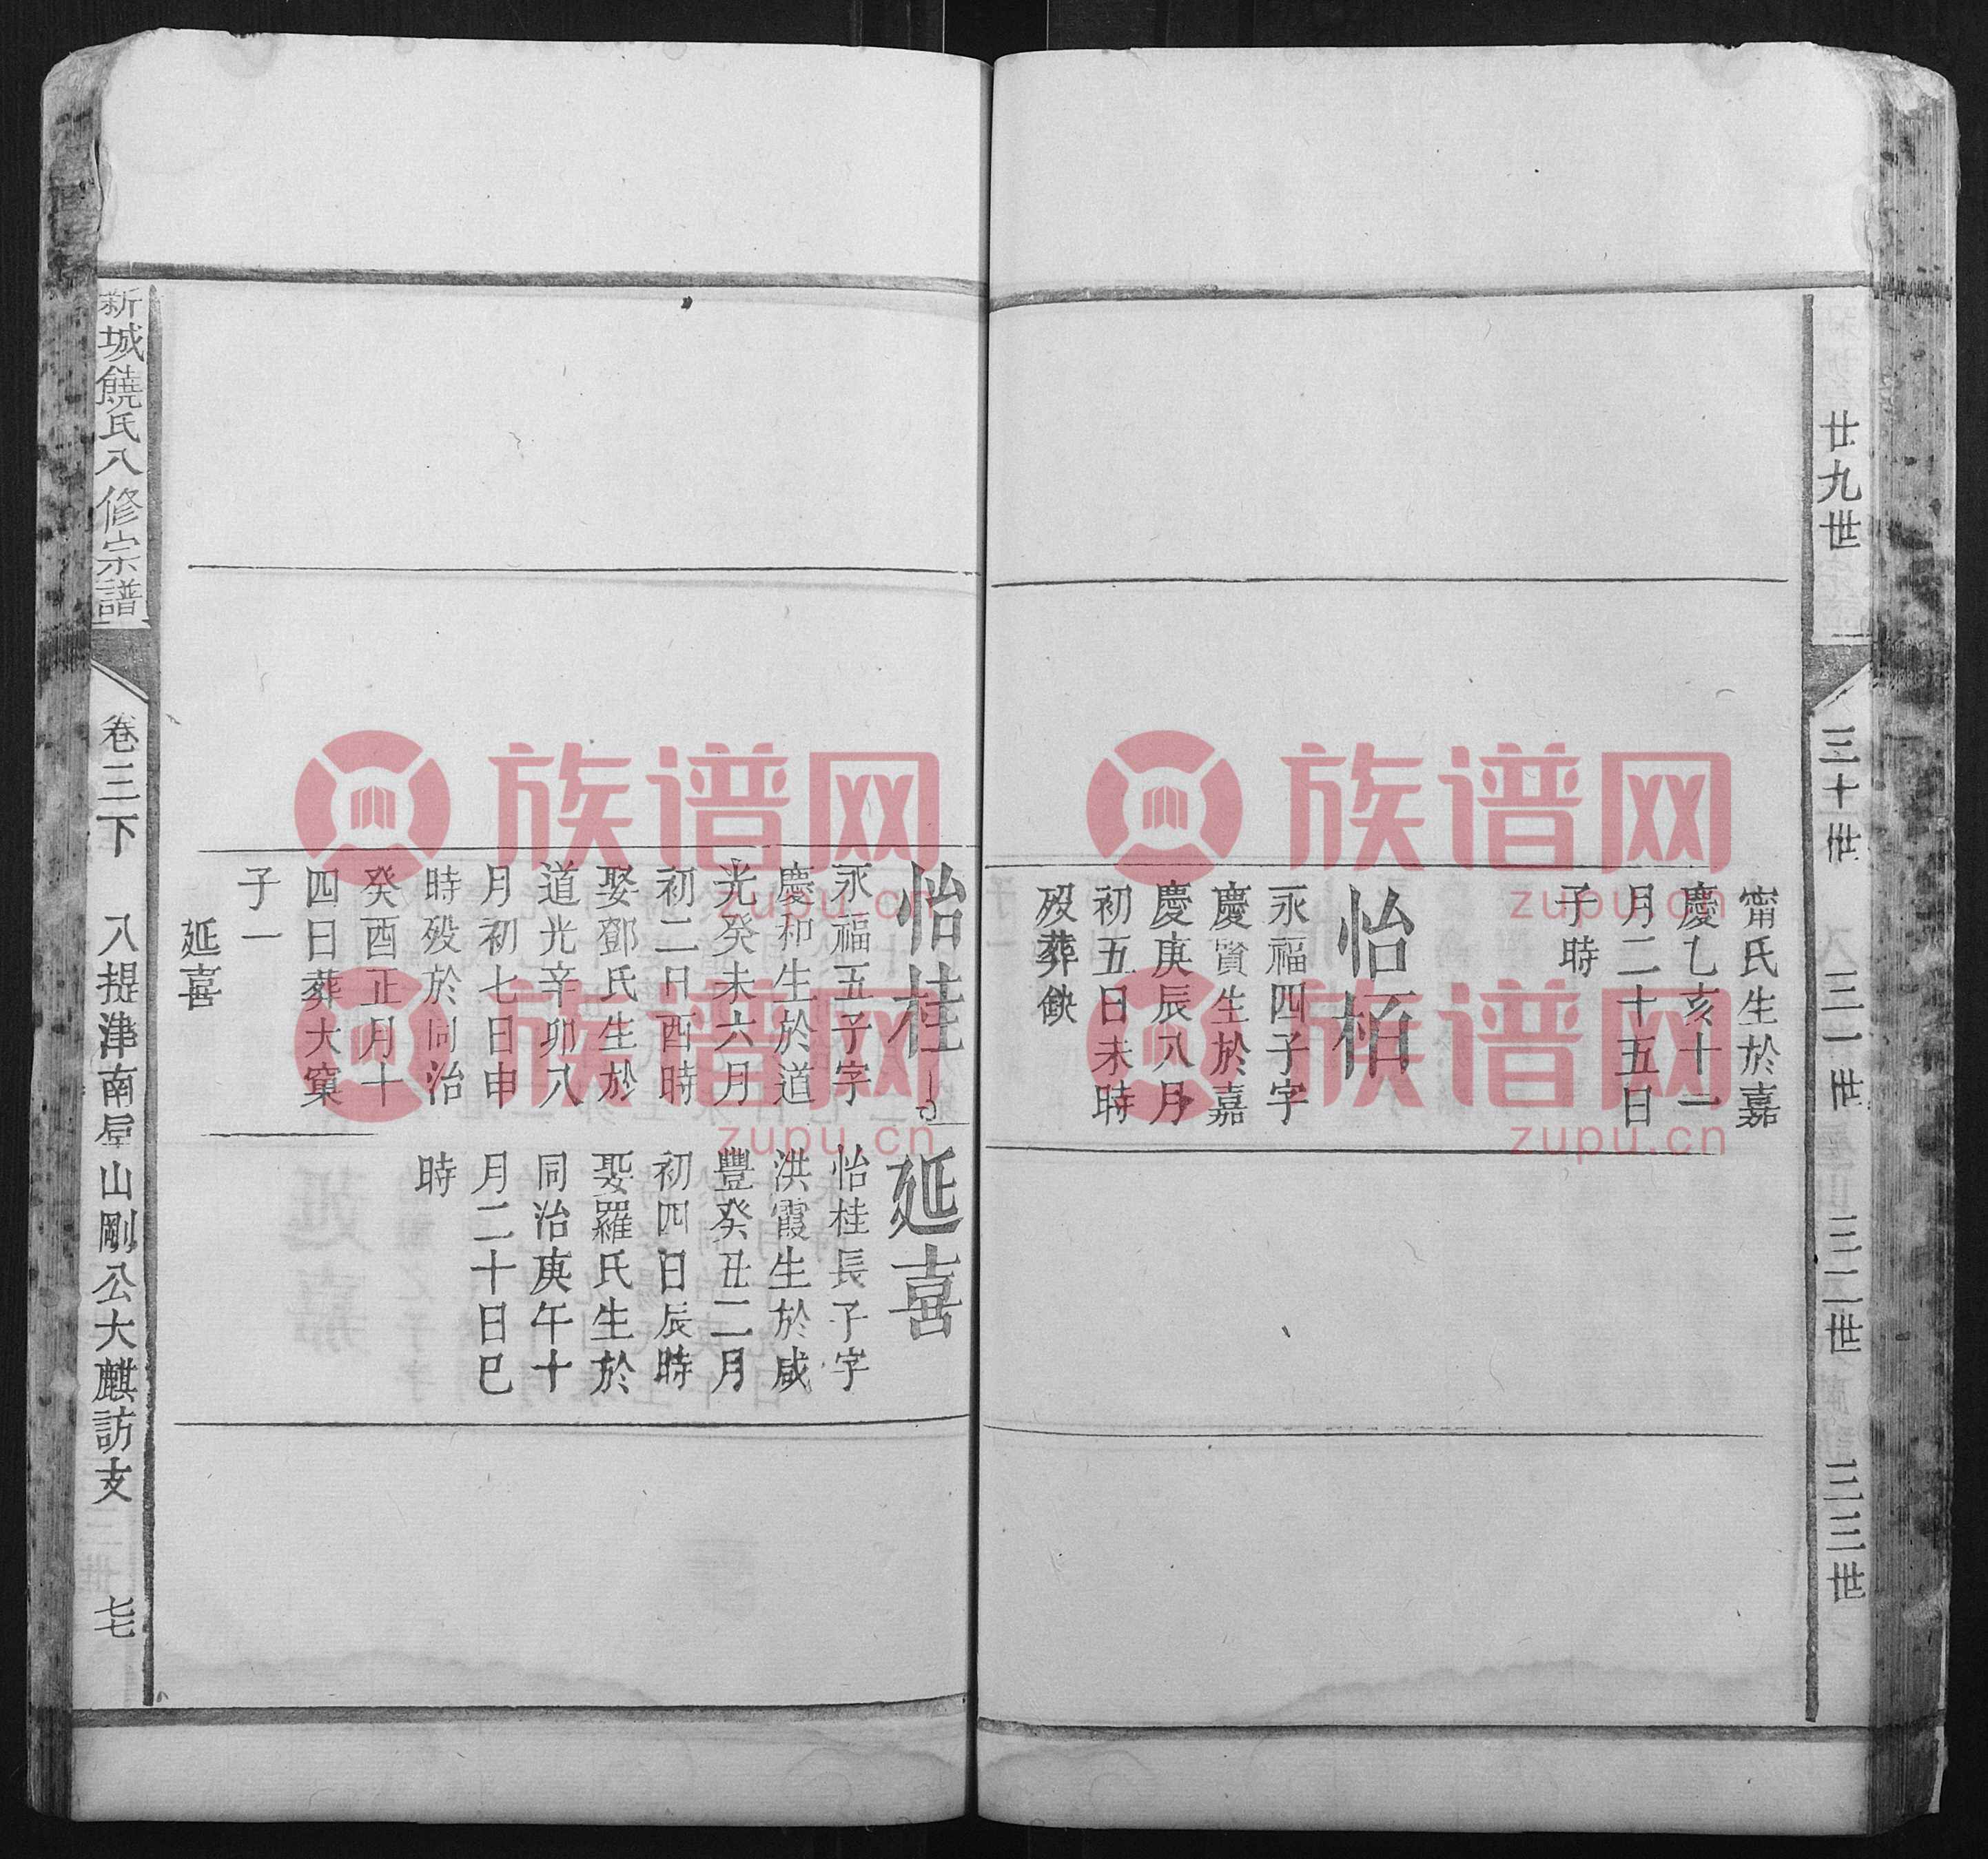 廿九世
三十世
三一世
三二世
三三世
甯氏生於嘉
慶乙亥十一
月二十五日
子時
怡栢
永福四子字
慶賢生於嘉
慶庚辰八月
初五日未時
歿葬缺
怡桂
永福五子字
慶和生於道
光癸未六月
初二日酉時
娶鄧氏生於
道光辛卯八
月初七日申
時歿於同治
癸酉正月十
四日葬大窠
子一
延喜
延喜
怡桂長子字
洪霞生於咸
豐癸丑二月
初四日辰時
娶羅氏生於
同治庚午十
月二十日巳
時
新城饒氏八修宗譜
卷三下
八提津南屋山剛公大麒訪支
七
族谱网
zupu.cn
族谱网
zupu.cn
族谱网
zupu.cn
族谱网
zupu.cn